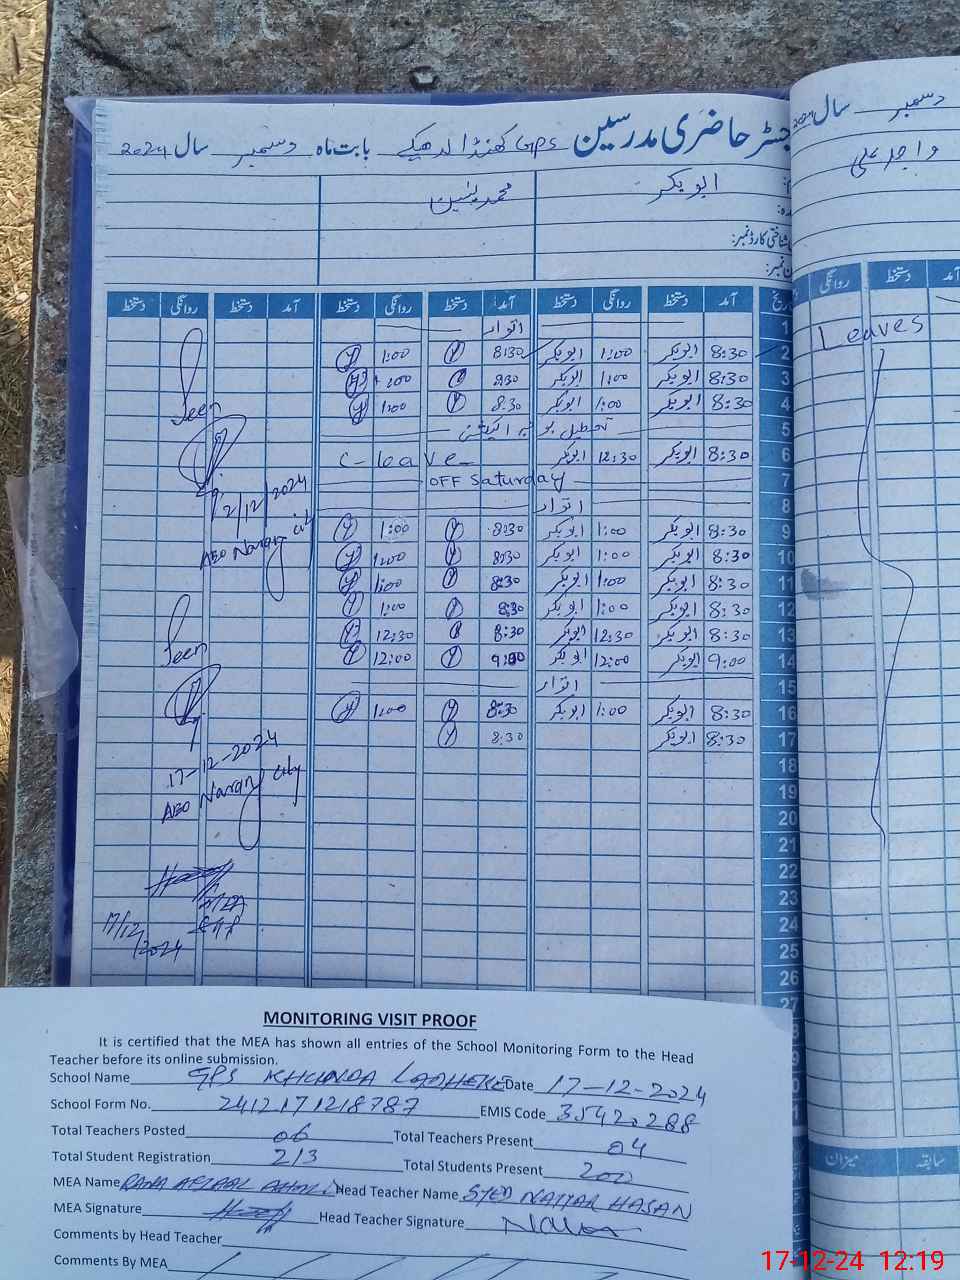 رجسٹر حاضری مدرسین GPS کھنڈا لدھیکے بابت ماہ دسمبر سال 2024
سال 2024 دسمبر
ابوبکر محمد یٰسین
واجد علی
شناختی کارڈ نمبر:
تاریخ آمد دستخط روانگی دستخط آمد دستخط روانگی دستخط آمد دستخط روانگی دستخط
روانگی دستخط آمد
Leaves
1 اتوار
2 8:30 ابوبکر 1:00 ابوبکر 8:30 1:00
3 8:30 ابوبکر 1:00 ابوبکر 8:30 1:00
4 8:30 ابوبکر 1:00 ابوبکر 8:30 1:00
5 تعطیل
6 8:30 ابوبکر 12:30 ابوبکر C-leave
7 OFF Saturday
8 اتوار
9 8:30 ابوبکر 1:00 ابوبکر 8:30 1:00
10 8:30 ابوبکر 1:00 ابوبکر 8:30 1:00
11 8:30 ابوبکر 1:00 ابوبکر 8:30 1:00
12 8:30 ابوبکر 1:00 ابوبکر 8:30 1:00
13 8:30 ابوبکر 12:30 ابوبکر 8:30 12:30
14 9:00 ابوبکر 12:00 ابوبکر 9:00 12:00
15 اتوار
16 8:30 ابوبکر 1:00 ابوبکر 8:30 1:00
17 8:30 ابوبکر 8:30
18
19
20
21
22
23
24
25
26
27
Seen
2/12/2024
AEO Narang city
Seen
17-12-2024
AEO Narang city
MEA
17/12/2024
سابقہ میزان
MONITORING VISIT PROOF
It is certified that the MEA has shown all entries of the School Monitoring Form to the Head
Teacher before its online submission.
School Name GPS KHUNDA LADHEKE Date 17-12-2024
School Form No. 2412171218787 EMIS Code 35420288
Total Teachers Posted 06 Total Teachers Present 04
Total Student Registration 213 Total Students Present 200
MEA Name RANA AFZAAL Head Teacher Name SYED NAYYAR HASAN
MEA Signature Head Teacher Signature
Comments by Head Teacher
Comments By MEA
17-12-24 12:19